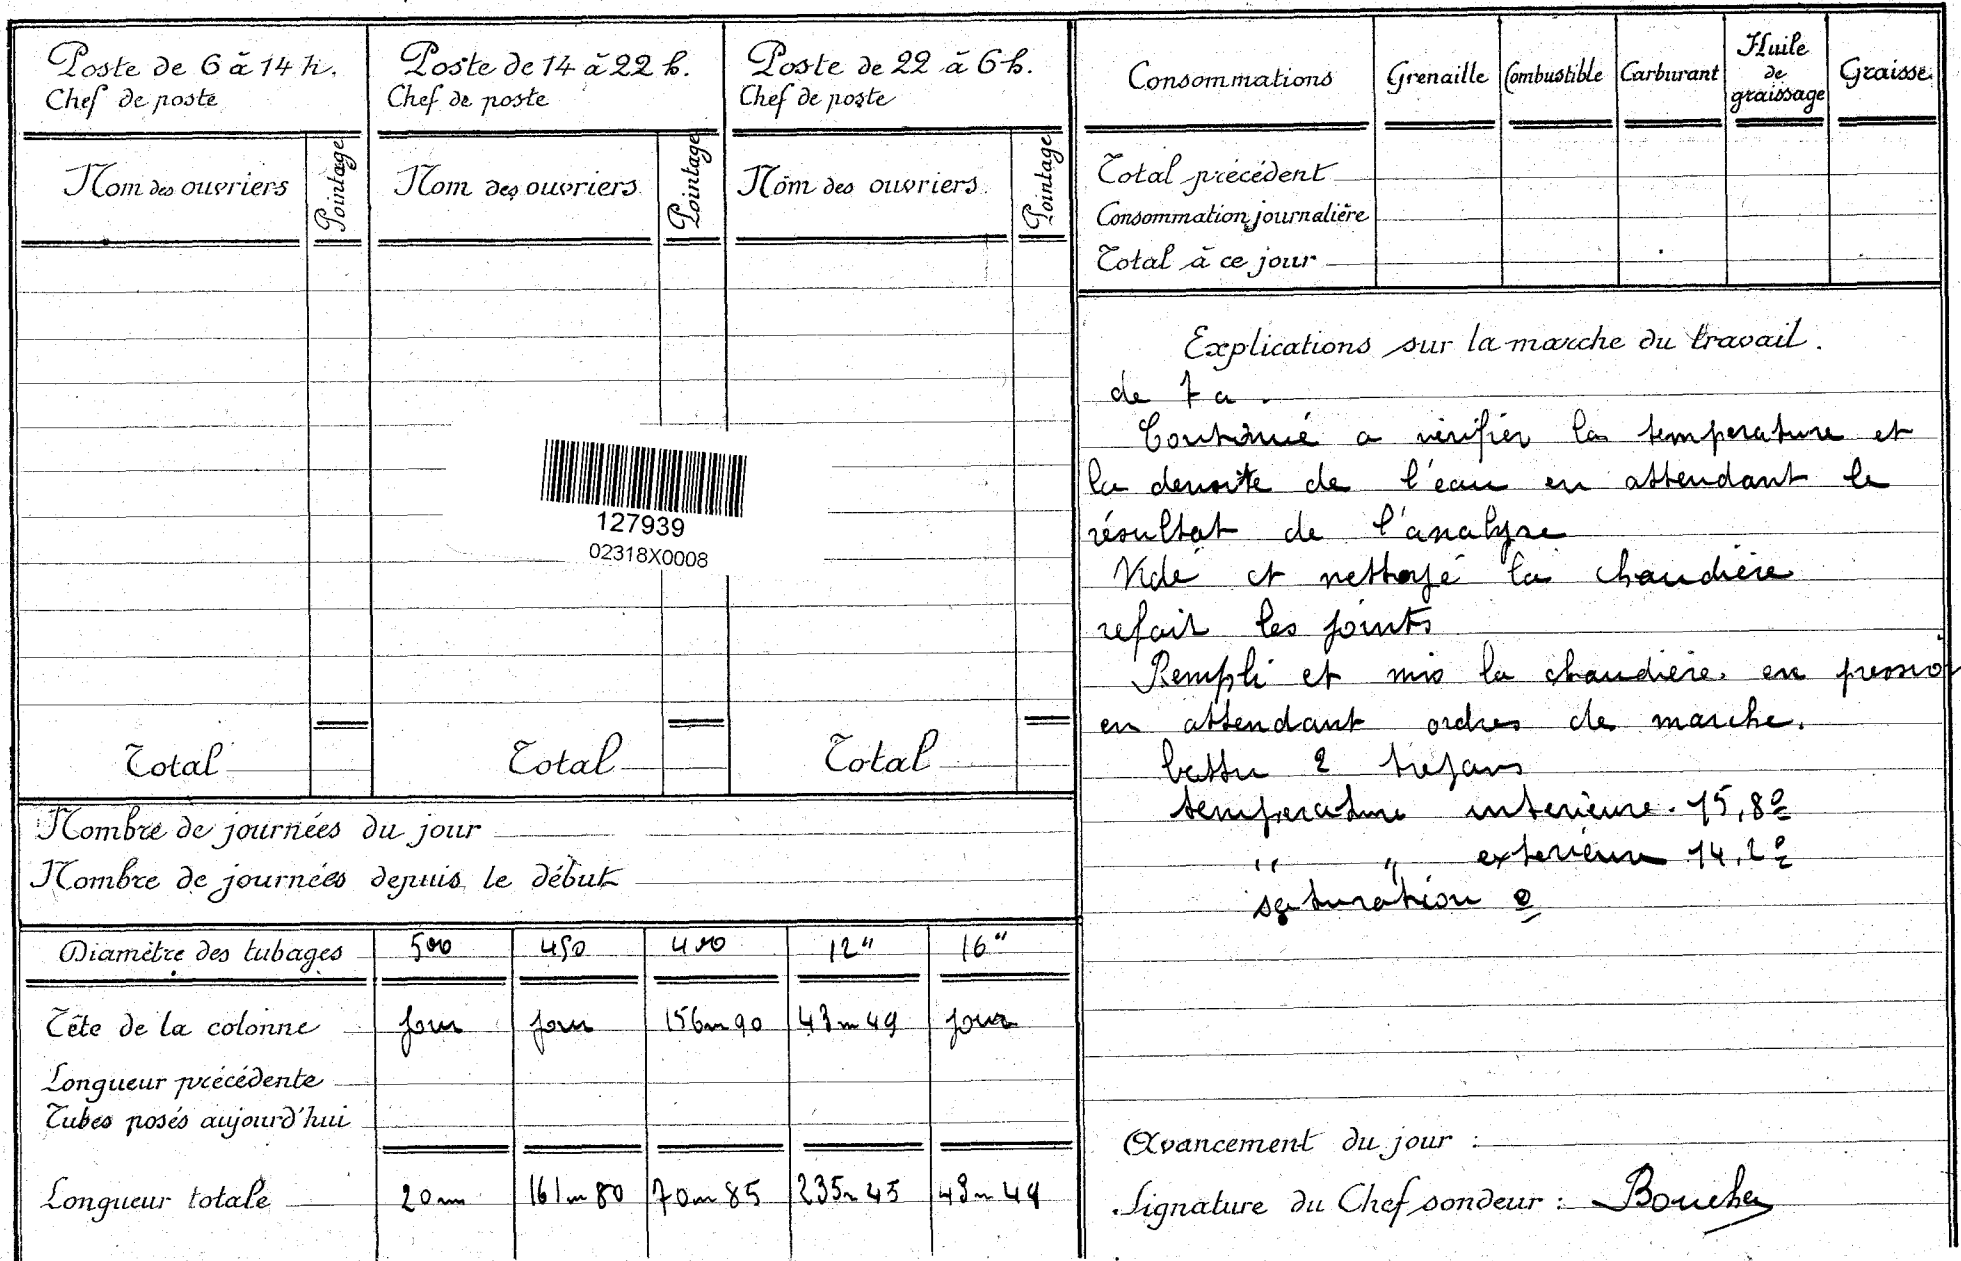 Poste de 6 à 14 h.
Chef de poste
Nom des ouvriers
Pointage
Total
Poste de 14 à 22 h.
Chef de poste
Nom des ouvriers
Pointage
Total
Poste de 22 à 6 h.
Chef de poste
Nom des ouvriers
Pointage
Total
127939
02318X0008
Nombre de journées du jour
Nombre de journées depuis le début
Diamètre des tubages 500 450 400 12" 16"
Tête de la colonne jour jour 156m90 43m49 jour
Longueur précédente
Tubes posés aujourd'hui
Longueur totale 20m 161m80 70m85 235m45 43m49
Consommations Grenaille Combustible Carburant Huile de graissage Graisse
Total précédent
Consommation journalière
Total à ce jour
Explications sur la marche du travail.
de 7 a
Continué a vérifier la temperature et
la densite de l'eau en attendant le
résultat de l'analyse
Vidé et nettoyé la chaudière
refait les joints
Rempli et mis la chaudière en pression
en attendant ordres de marche.
battu 2 trepans
temperature interieure. 15,8°
" " exterieure 14,2°
saturation 0
Avancement du jour :
Signature du Chef sondeur :